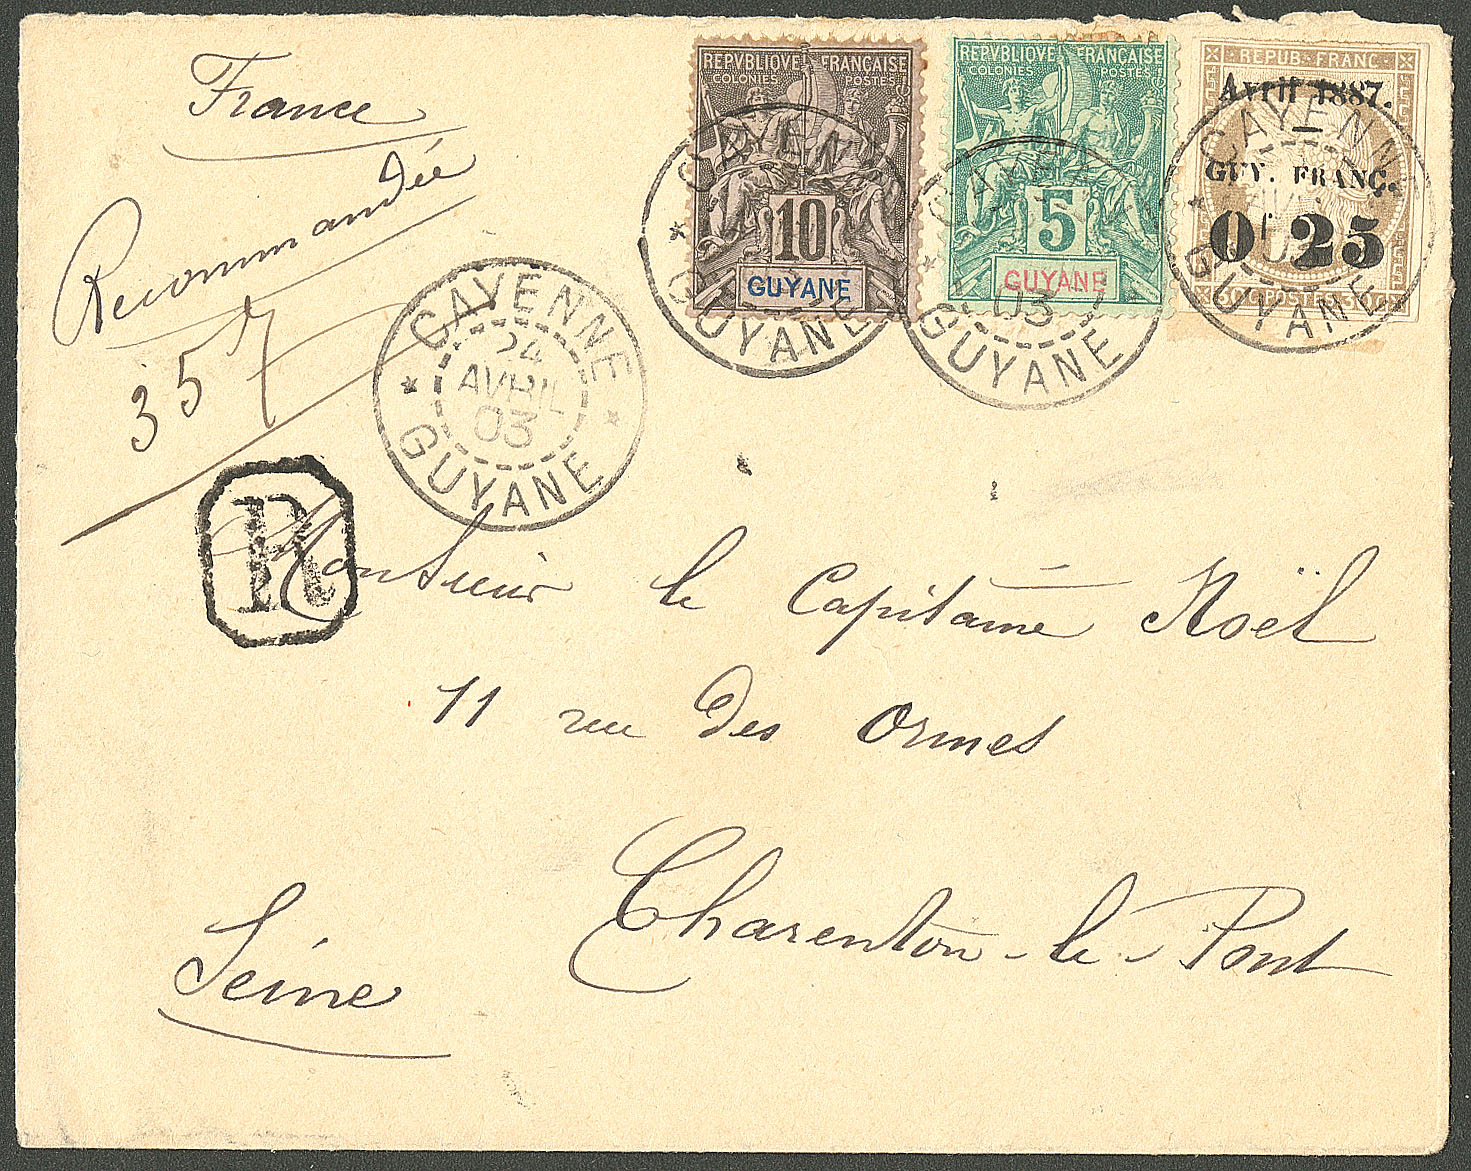 France
Recommandée
357
REPVBLIQVE FRANÇAISE
COLONIES POSTES
10
GUYANE
REPVBLIQVE FRANÇAISE
COLONIES POSTES
5
GUYANE
REPUB. FRANC.
Avril 1887.
GUY. FRANÇ.
0f 25
30C POSTES 30C
CAYENNE
GUYANE
CAYENNE
03
GUYANE
CAYENNE
GUYANE
CAYENNE
24
AVRIL
03
GUYANE
R
Monsieur le Capitaine Noël
11 rue des Ormes
Charenton-le-Pont
Seine